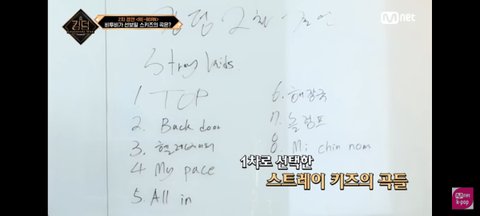 킹덤
2차 경연 <RE-BORN>
비투비가 선보일 스키즈의 곡은?
Mnet
킹덤 2차 경연
Stray kids
1 TOP
2. Back door
3. 헬리베이터
4 My pace
5. All in
6. 해장국
7. 놀랑프
8. Mi chin nom
1차로 선택한
스트레이 키즈의 곡들
Mnet
k-pop